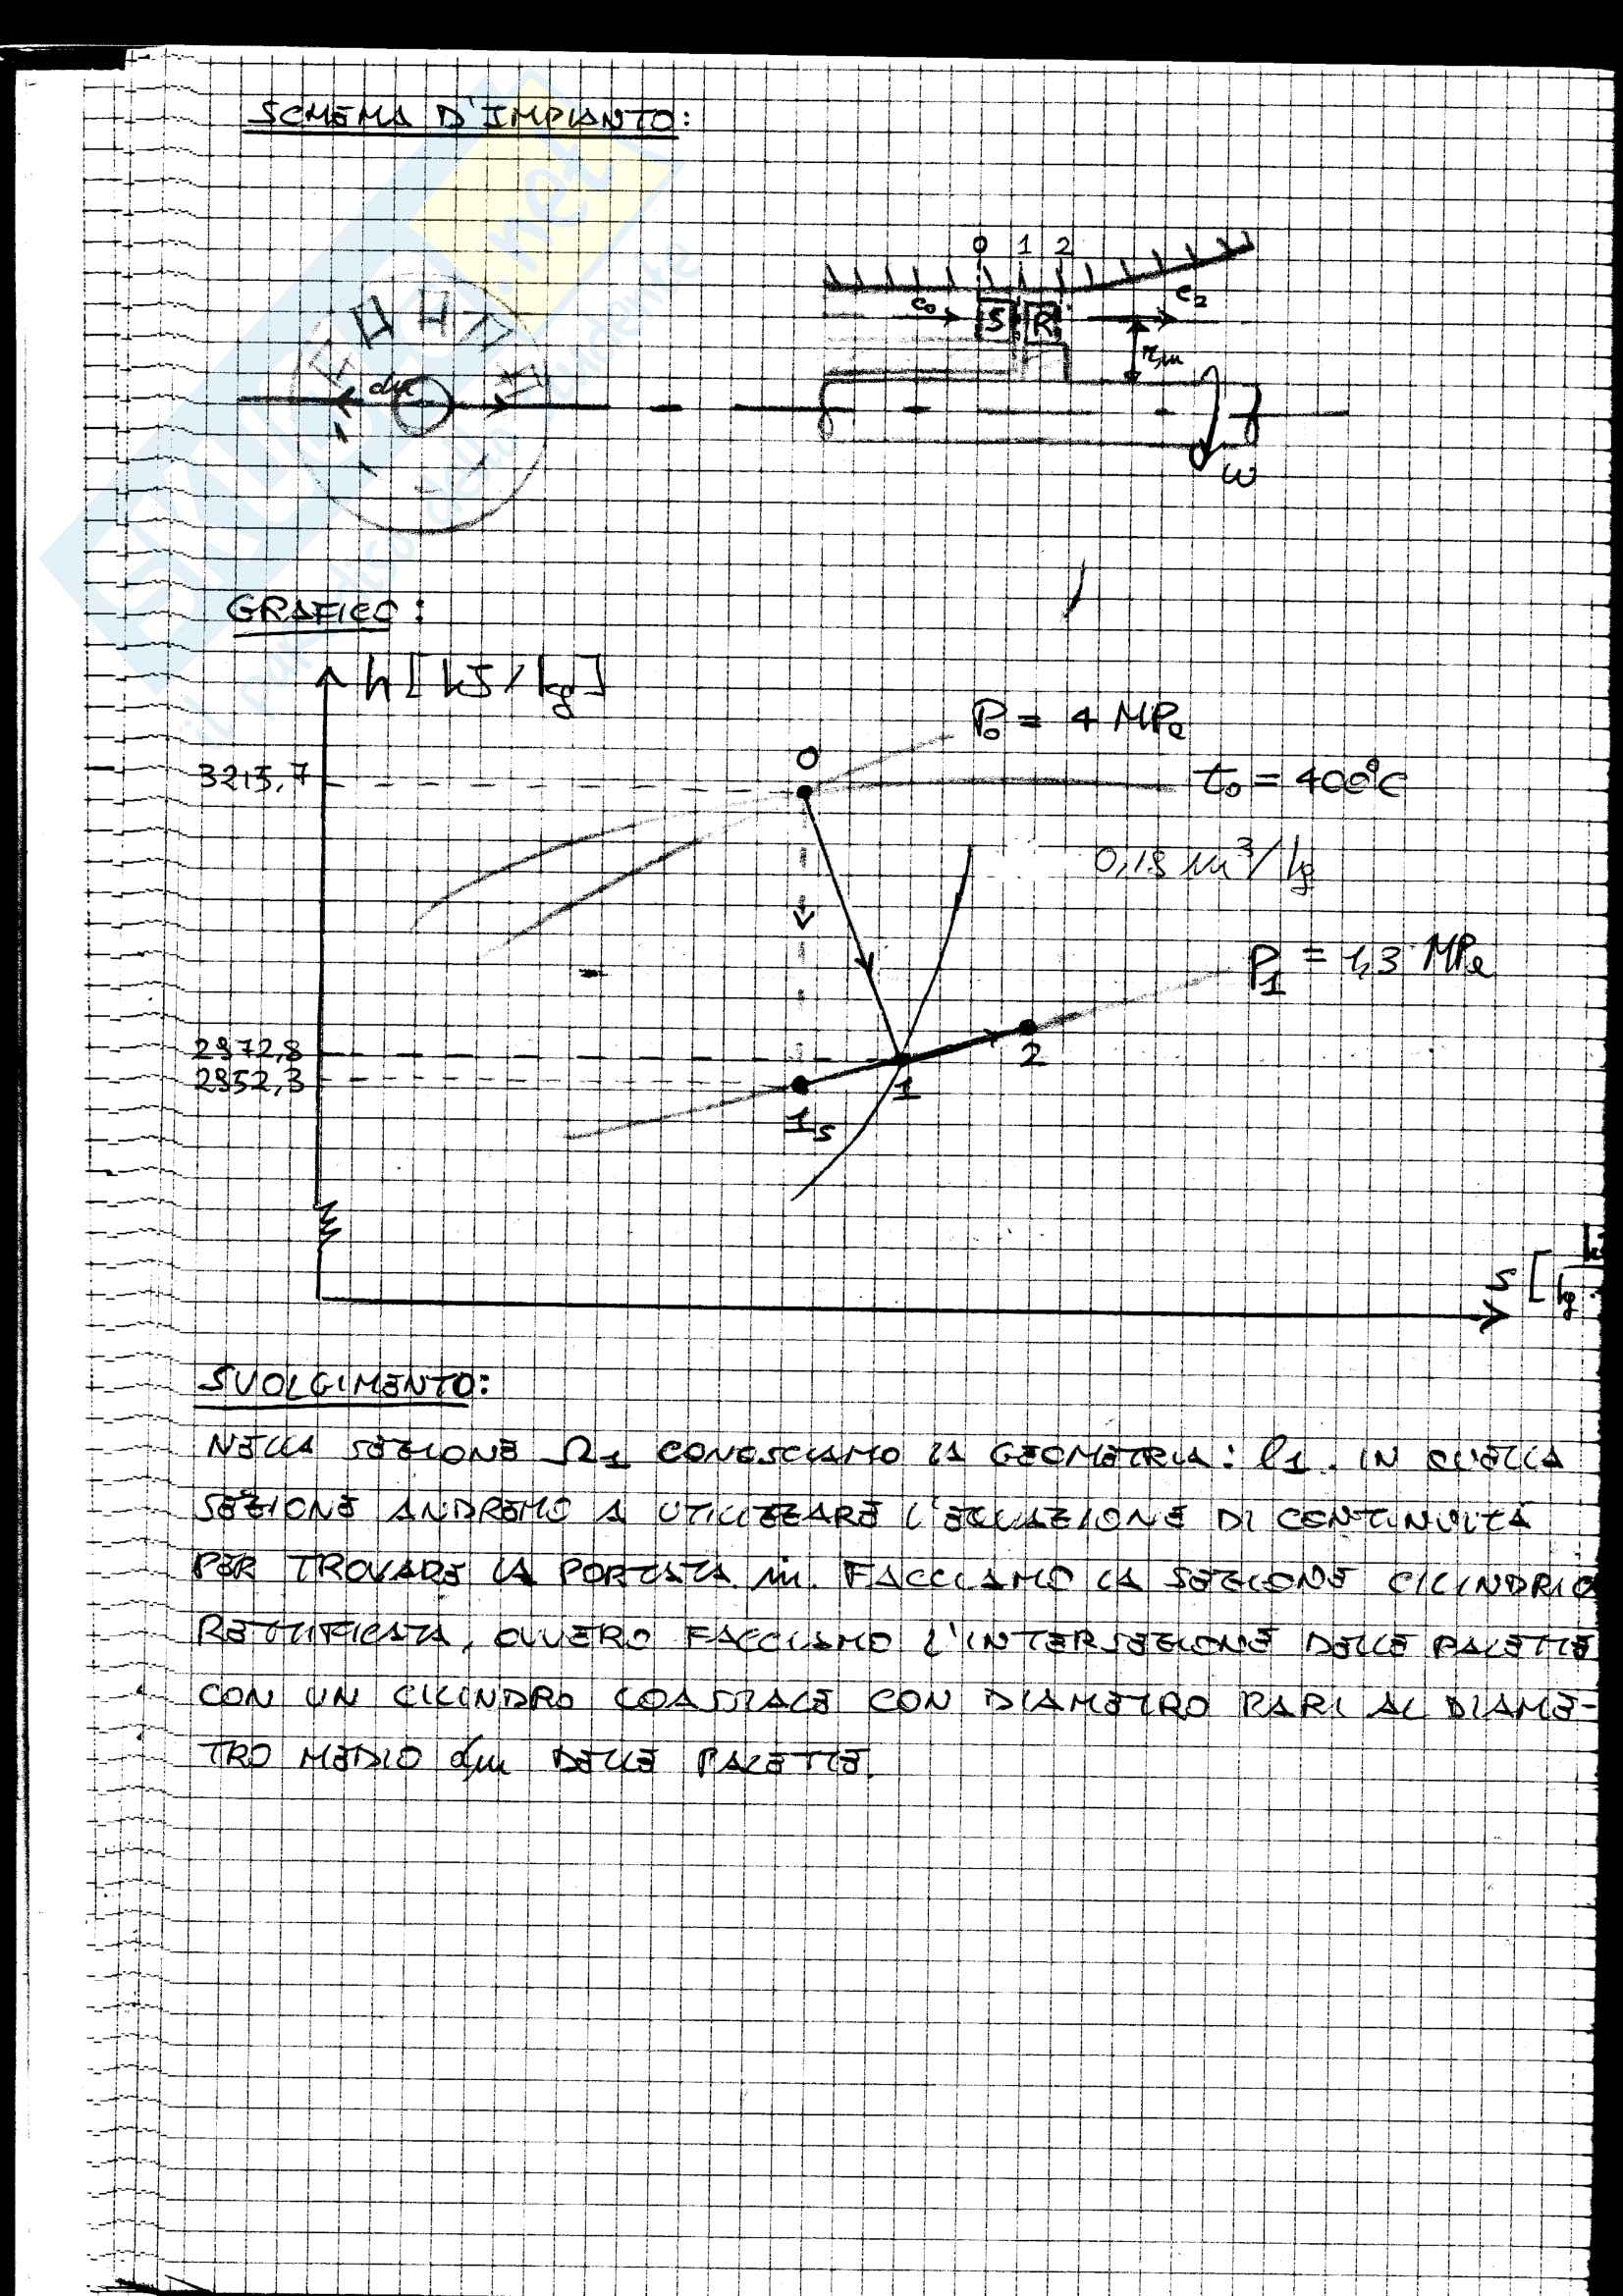 SCHEMA D'IMPIANTO:
0 1 2
c₀ S R c₂
dm
rm
ω
GRAFICO:
h [kJ/kg]
P₀ = 4 MPa
0
3215,7
t₀ = 400°C
0,18 m³/kg
P₁ = 1,3 MPa
2972,8
2
2952,3
1
1s
s [
kg
SVOLGIMENTO:
NELLA SEZIONE Ω1 CONOSCIAMO LA GEOMETRIA: l1. IN QUELLA
SEZIONE ANDREMO A UTILIZZARE L'EQUAZIONE DI CONTINUITÀ
PER TROVARE LA PORTATA ṁ. FACCIAMO LA SEZIONE CILINDRIC
RETTIFICATA, OVVERO FACCIAMO L'INTERSEZIONE DELLE PALETTE
CON UN CILINDRO COASSIALE CON DIAMETRO PARI AL DIAME-
TRO MEDIO dm DELLE PALETTE.
SKUOLA.net
il paradiso dello studente